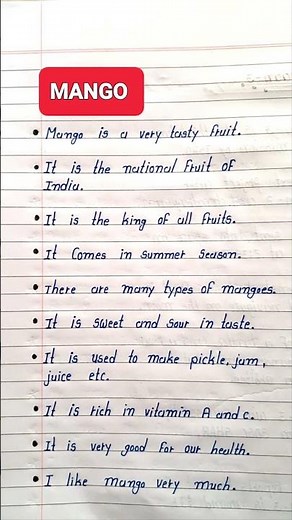 MANGO
• Mango is a very tasty fruit.
• It is the national fruit of
India.
• It is the king of all fruits.
• It Comes in summer season.
• There are many types of mangoes.
• It is sweet and sour in taste.
• It is used to make pickle, jam,
juice etc.
• It is rich in vitamin A and c.
• It is very good for our health.
• I like mango very much.